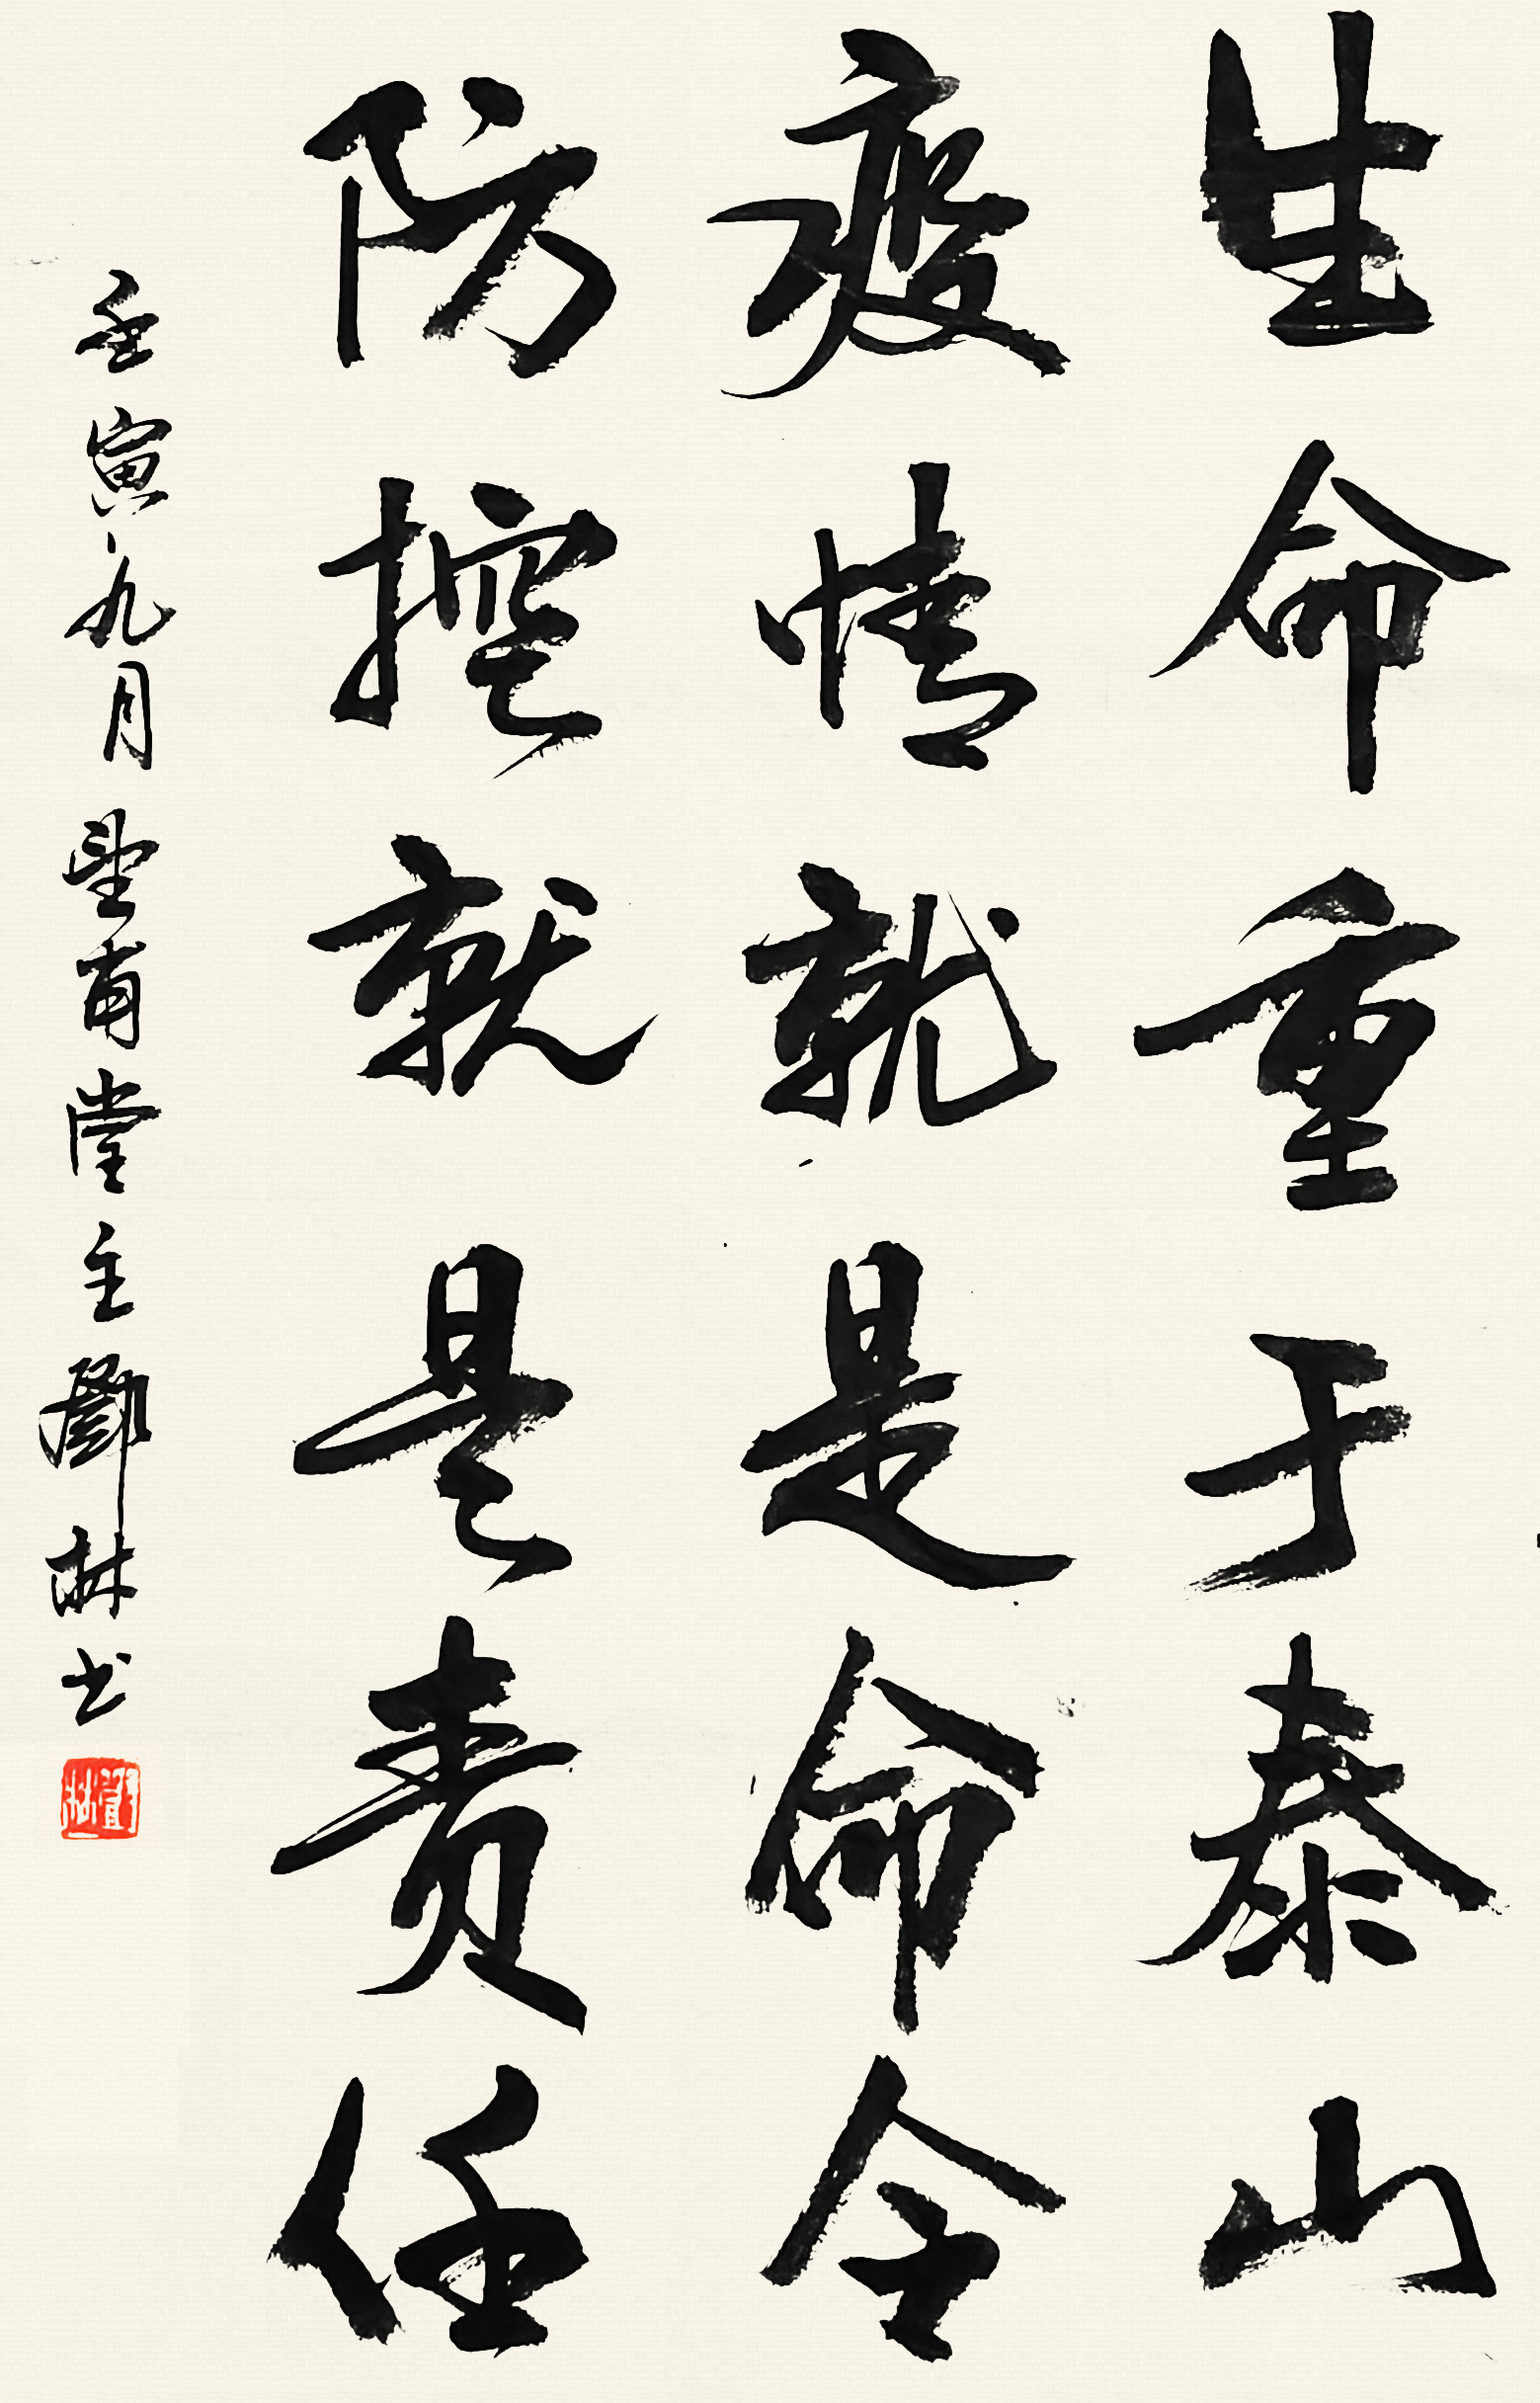 生命重于泰山
疫情就是命令
防控就是责任
壬寅九月 堂主鄧林书